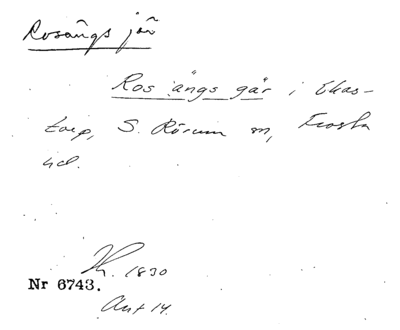 Rosängs jär
Ros ängs gär i Ekas-
torp, S. Rörum sn, Frosta
hd.
1830
Nr 6743.
Ant 14.